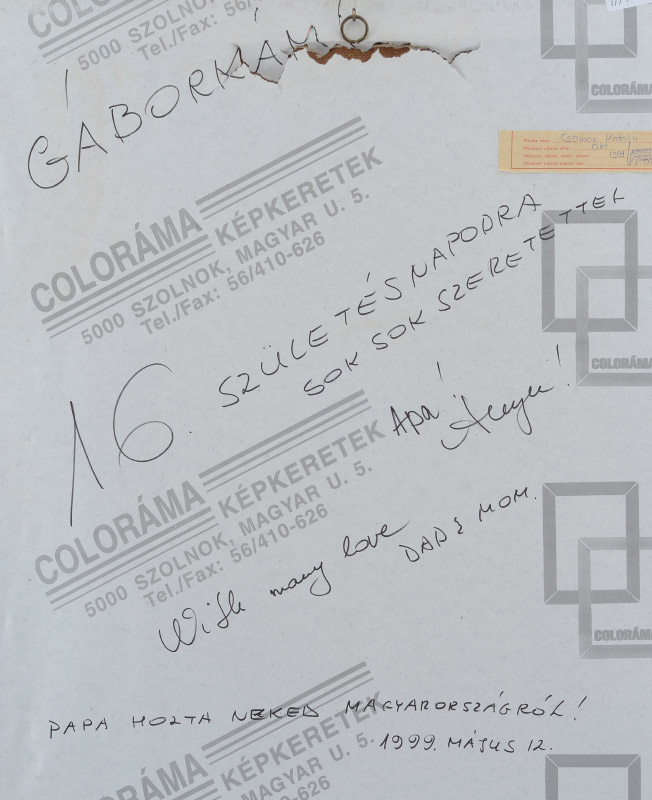 COLORÁMA
5000 SZOLNOK,
Tel./Fax: 56/
GÁBORKÁM!
COLORÁMA
COLORÁMA KÉPKERETEK
5000 SZOLNOK, MAGYAR U. 5.
Tel./Fax: 56/410-626
16. SZÜLETÉSNAPODRA
SOK SOK SZERETETTEL
COLORÁMA
Apa! Anyu!
COLORÁMA KÉPKERETEK
5000 SZOLNOK, MAGYAR U. 5.
Tel./Fax: 56/410-626
With many love DAD & MOM.
COLORÁMA
PAPA HOZTA NEKED MAGYARORSZÁGRÓL!
1999. MÁJUS 12.
COLORÁMA KÉPKERETEK
5000 SZOLNOK, MAGYAR U. 5.